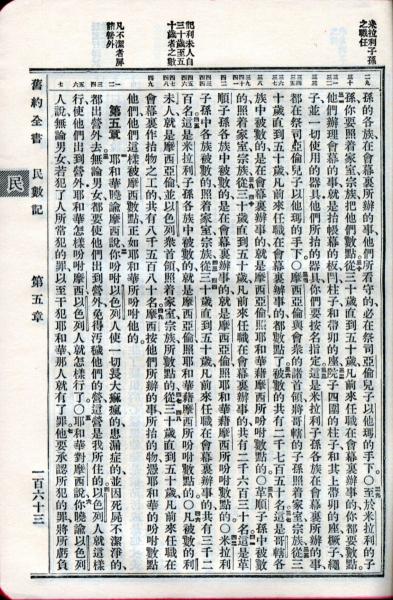 米拉利子孫
之職任
犯利未人自
三十歲至五
十歲者之數
凡不潔者屏
諸營外
孫的各族在會幕裏所辦的事他們所看守的必在祭司亞倫兒子以他瑪的手下○至於米拉利的子
孫你要照着家室宗族把他們數點從三十歲直到五十歲凡前來任職在會幕裏辦事的你都要數點
他們辦理會幕的事就是抬帳幕的板閂柱子和帶卯的座院子四圍的柱子和其上帶卯的座橛子繩
子並一切使用的器具他們所抬的器具你們要按名指定這是米拉利子孫各族在會幕裏所辦的事
都在祭司亞倫兒子以他瑪的手下○摩西亞倫與會衆的諸首領將哥轄的子孫照着家室宗族從三
十歲直到五十歲凡前來任職在會幕裏辦事的都數點了被數的共有二千七百五十名這是哥轄各
族中被數的是在會幕裏辦事的就是摩西亞倫照耶和華藉摩西所吩咐數點的○革順子孫中被數
的照着家室宗族從三十歲直到五十歲凡前來任職在會幕裏辦事的共有二千六百三十名這是革
順子孫各族中被數的是在會幕裏辦事的就是摩西亞倫照耶和華藉摩西所吩咐數點的○米拉利
子孫中各族被數的照着家室宗族從三十歲直到五十歲凡前來任職在會幕裏辦事的共有三千二
百名這是米拉利子孫各族中被數的就是摩西亞倫照耶和華藉摩西所吩咐數點的○凡被數的利
未人就是摩西亞倫並以色列衆首領照着家室宗族所數點的從三十歲直到五十歲凡前來任職在
會幕裏作抬物之工的共有八千五百八十名摩西按他們所辦的事所抬的物憑耶和華的吩咐數點
他們他們這樣被摩西數點正如耶和華所吩咐他的
第五章
耶和華曉諭摩西說你吩咐以色列人使一切長大痲瘋的患漏症的並因死屍不潔淨的
都出營外去無論男女都要使他們出到營外免得汚穢他們的營這營是我所住的以色列人就這樣
行使他們出到營外耶和華怎樣吩咐摩西以色列人就怎樣行了○耶和華對摩西說你曉諭以色列
人說無論男女若犯了人所常犯的罪以至干犯耶和華那人就有了罪他要承認所犯的罪將所虧負
舊約全書
民數記
第五章
一百六十三
民